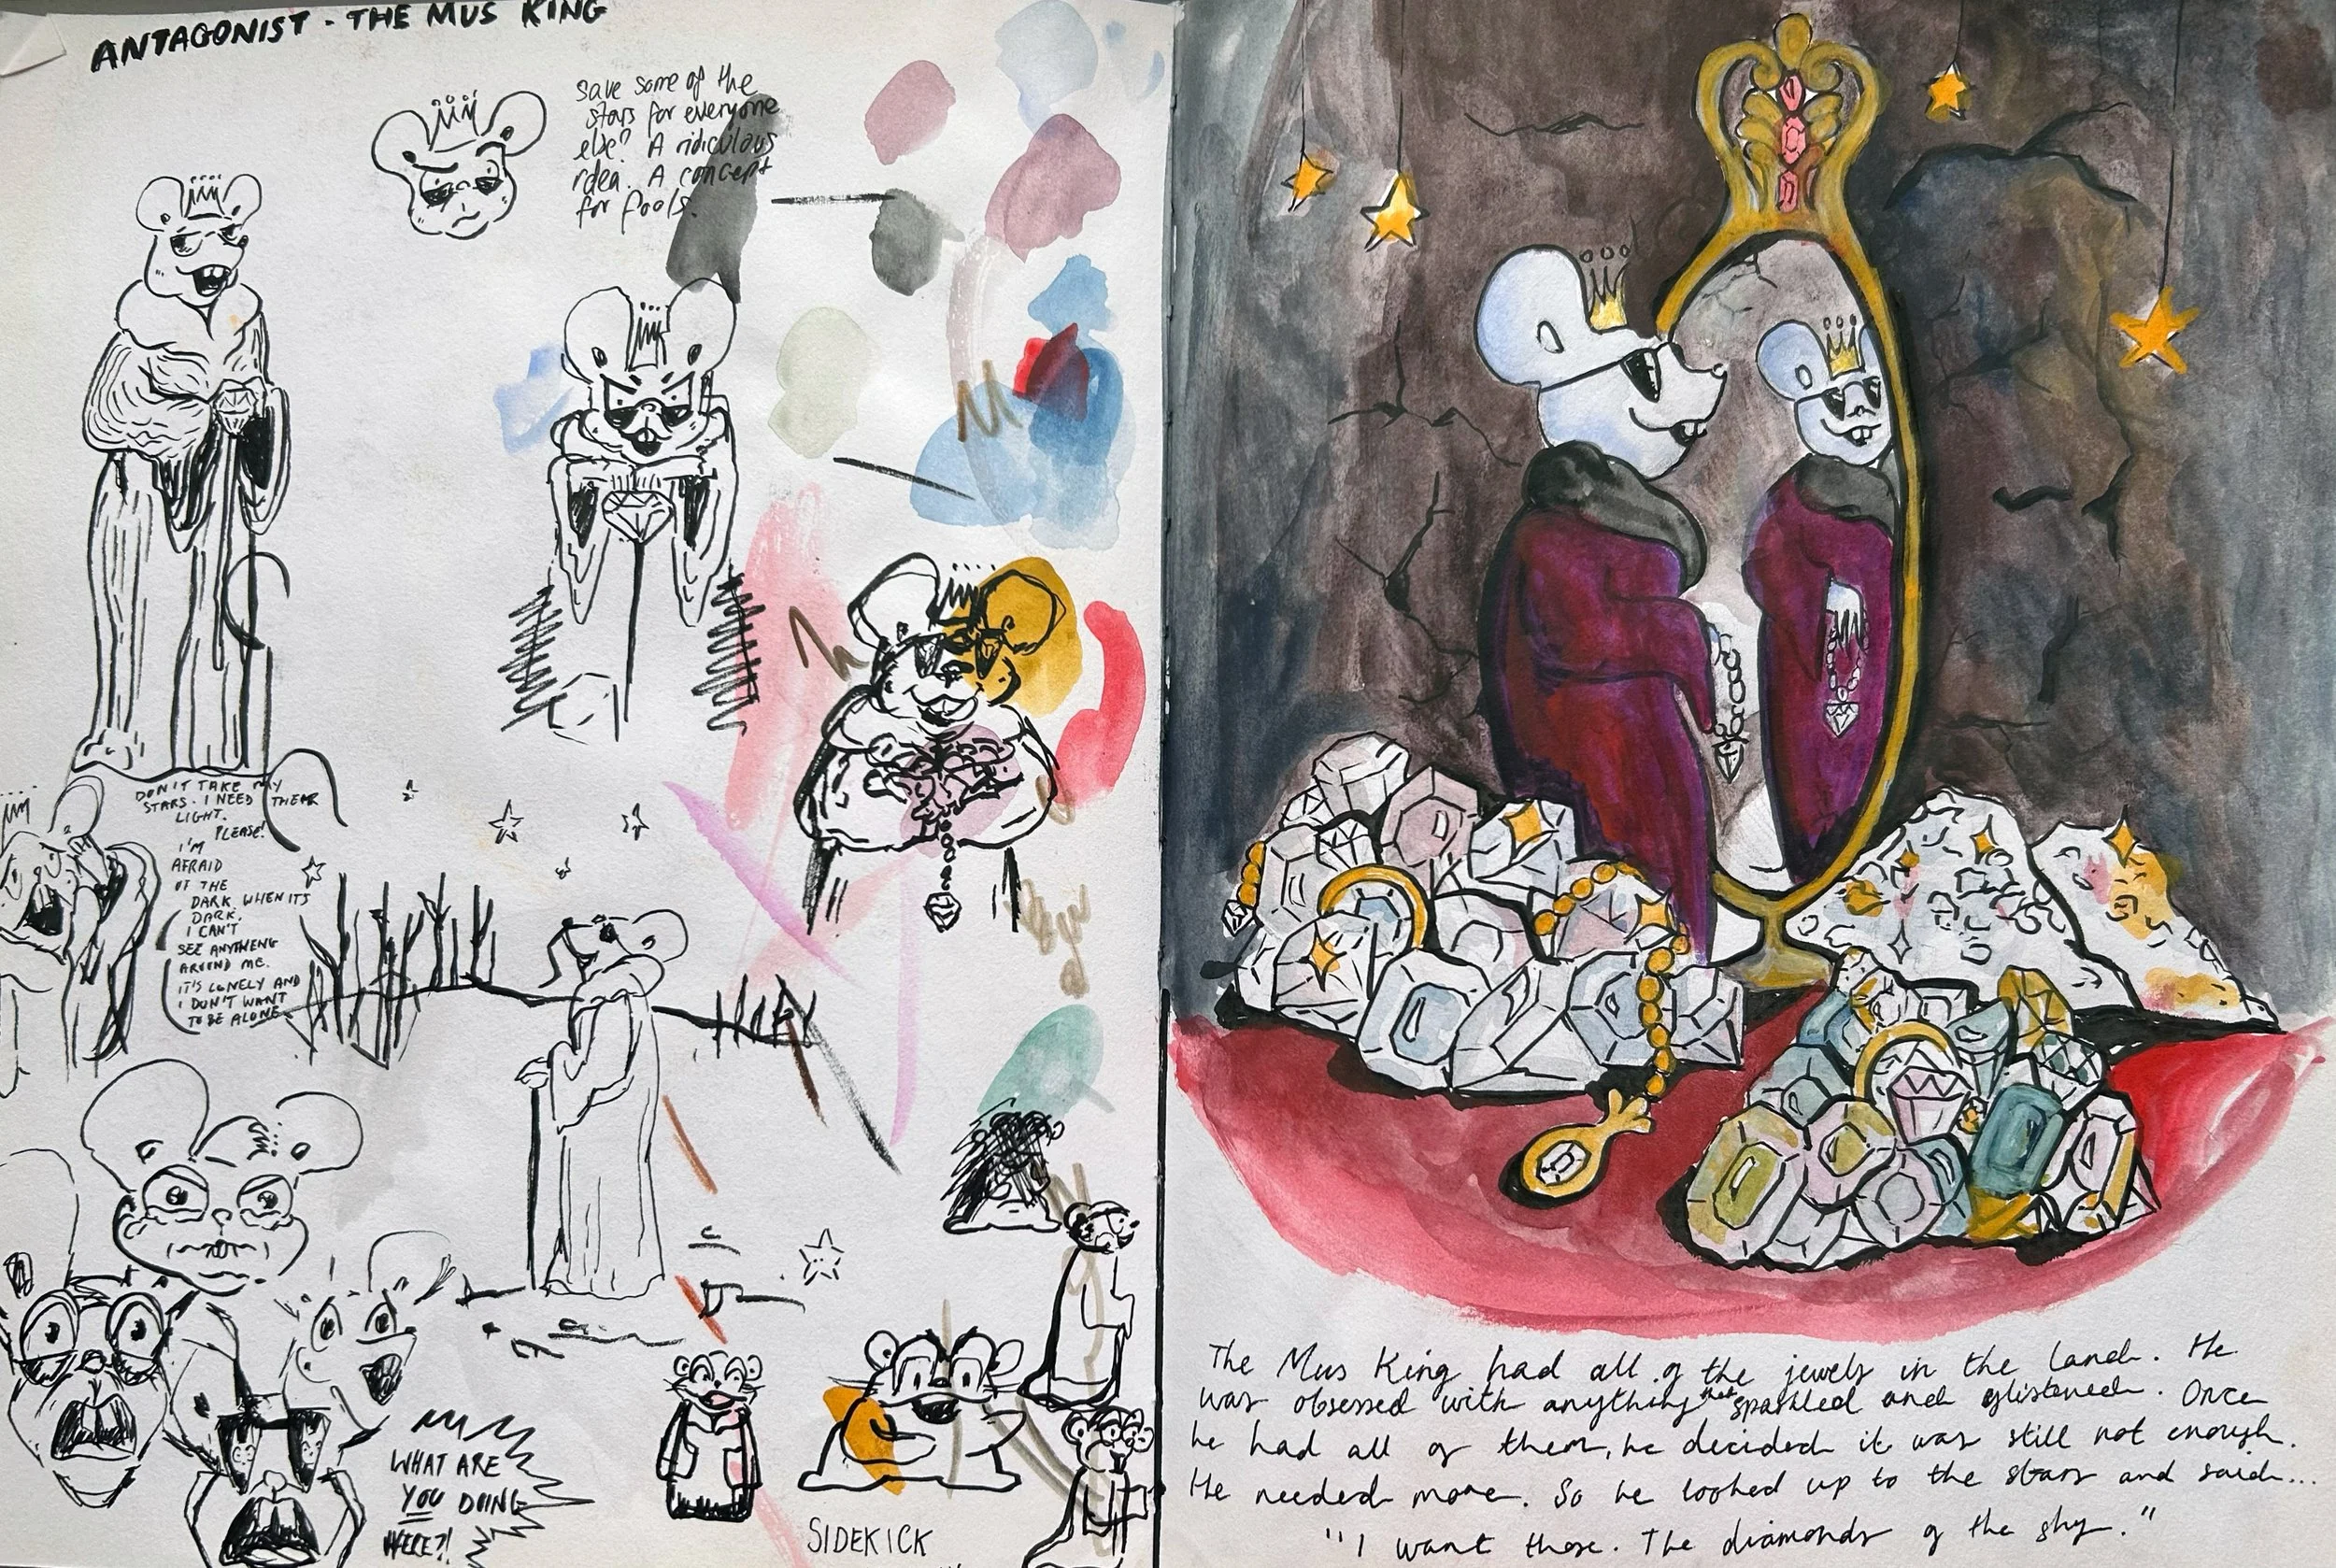 ANTAGONIST - THE MUS KING
save some of the
stars for everyone
else? A ridiculous
idea. A concept
for fools.
DON'T TAKE MY
STARS. I NEED THEIR
LIGHT.
PLEASE!
I'M
AFRAID
OF THE
DARK. WHEN IT'S
DARK.
I CAN'T
SEE ANYTHING
AROUND ME.
IT'S LONELY AND
I DON'T WANT
TO BE ALONE
WHAT ARE
YOU DOING
HERE?!
SIDEKICK
The Mus King had all of the jewels in the land. He
was obsessed with anything that sparkled and glistened. Once
he had all of them, he decided it was still not enough.
He needed more. So he looked up to the stars and said...
"I want those. The diamonds of the sky."